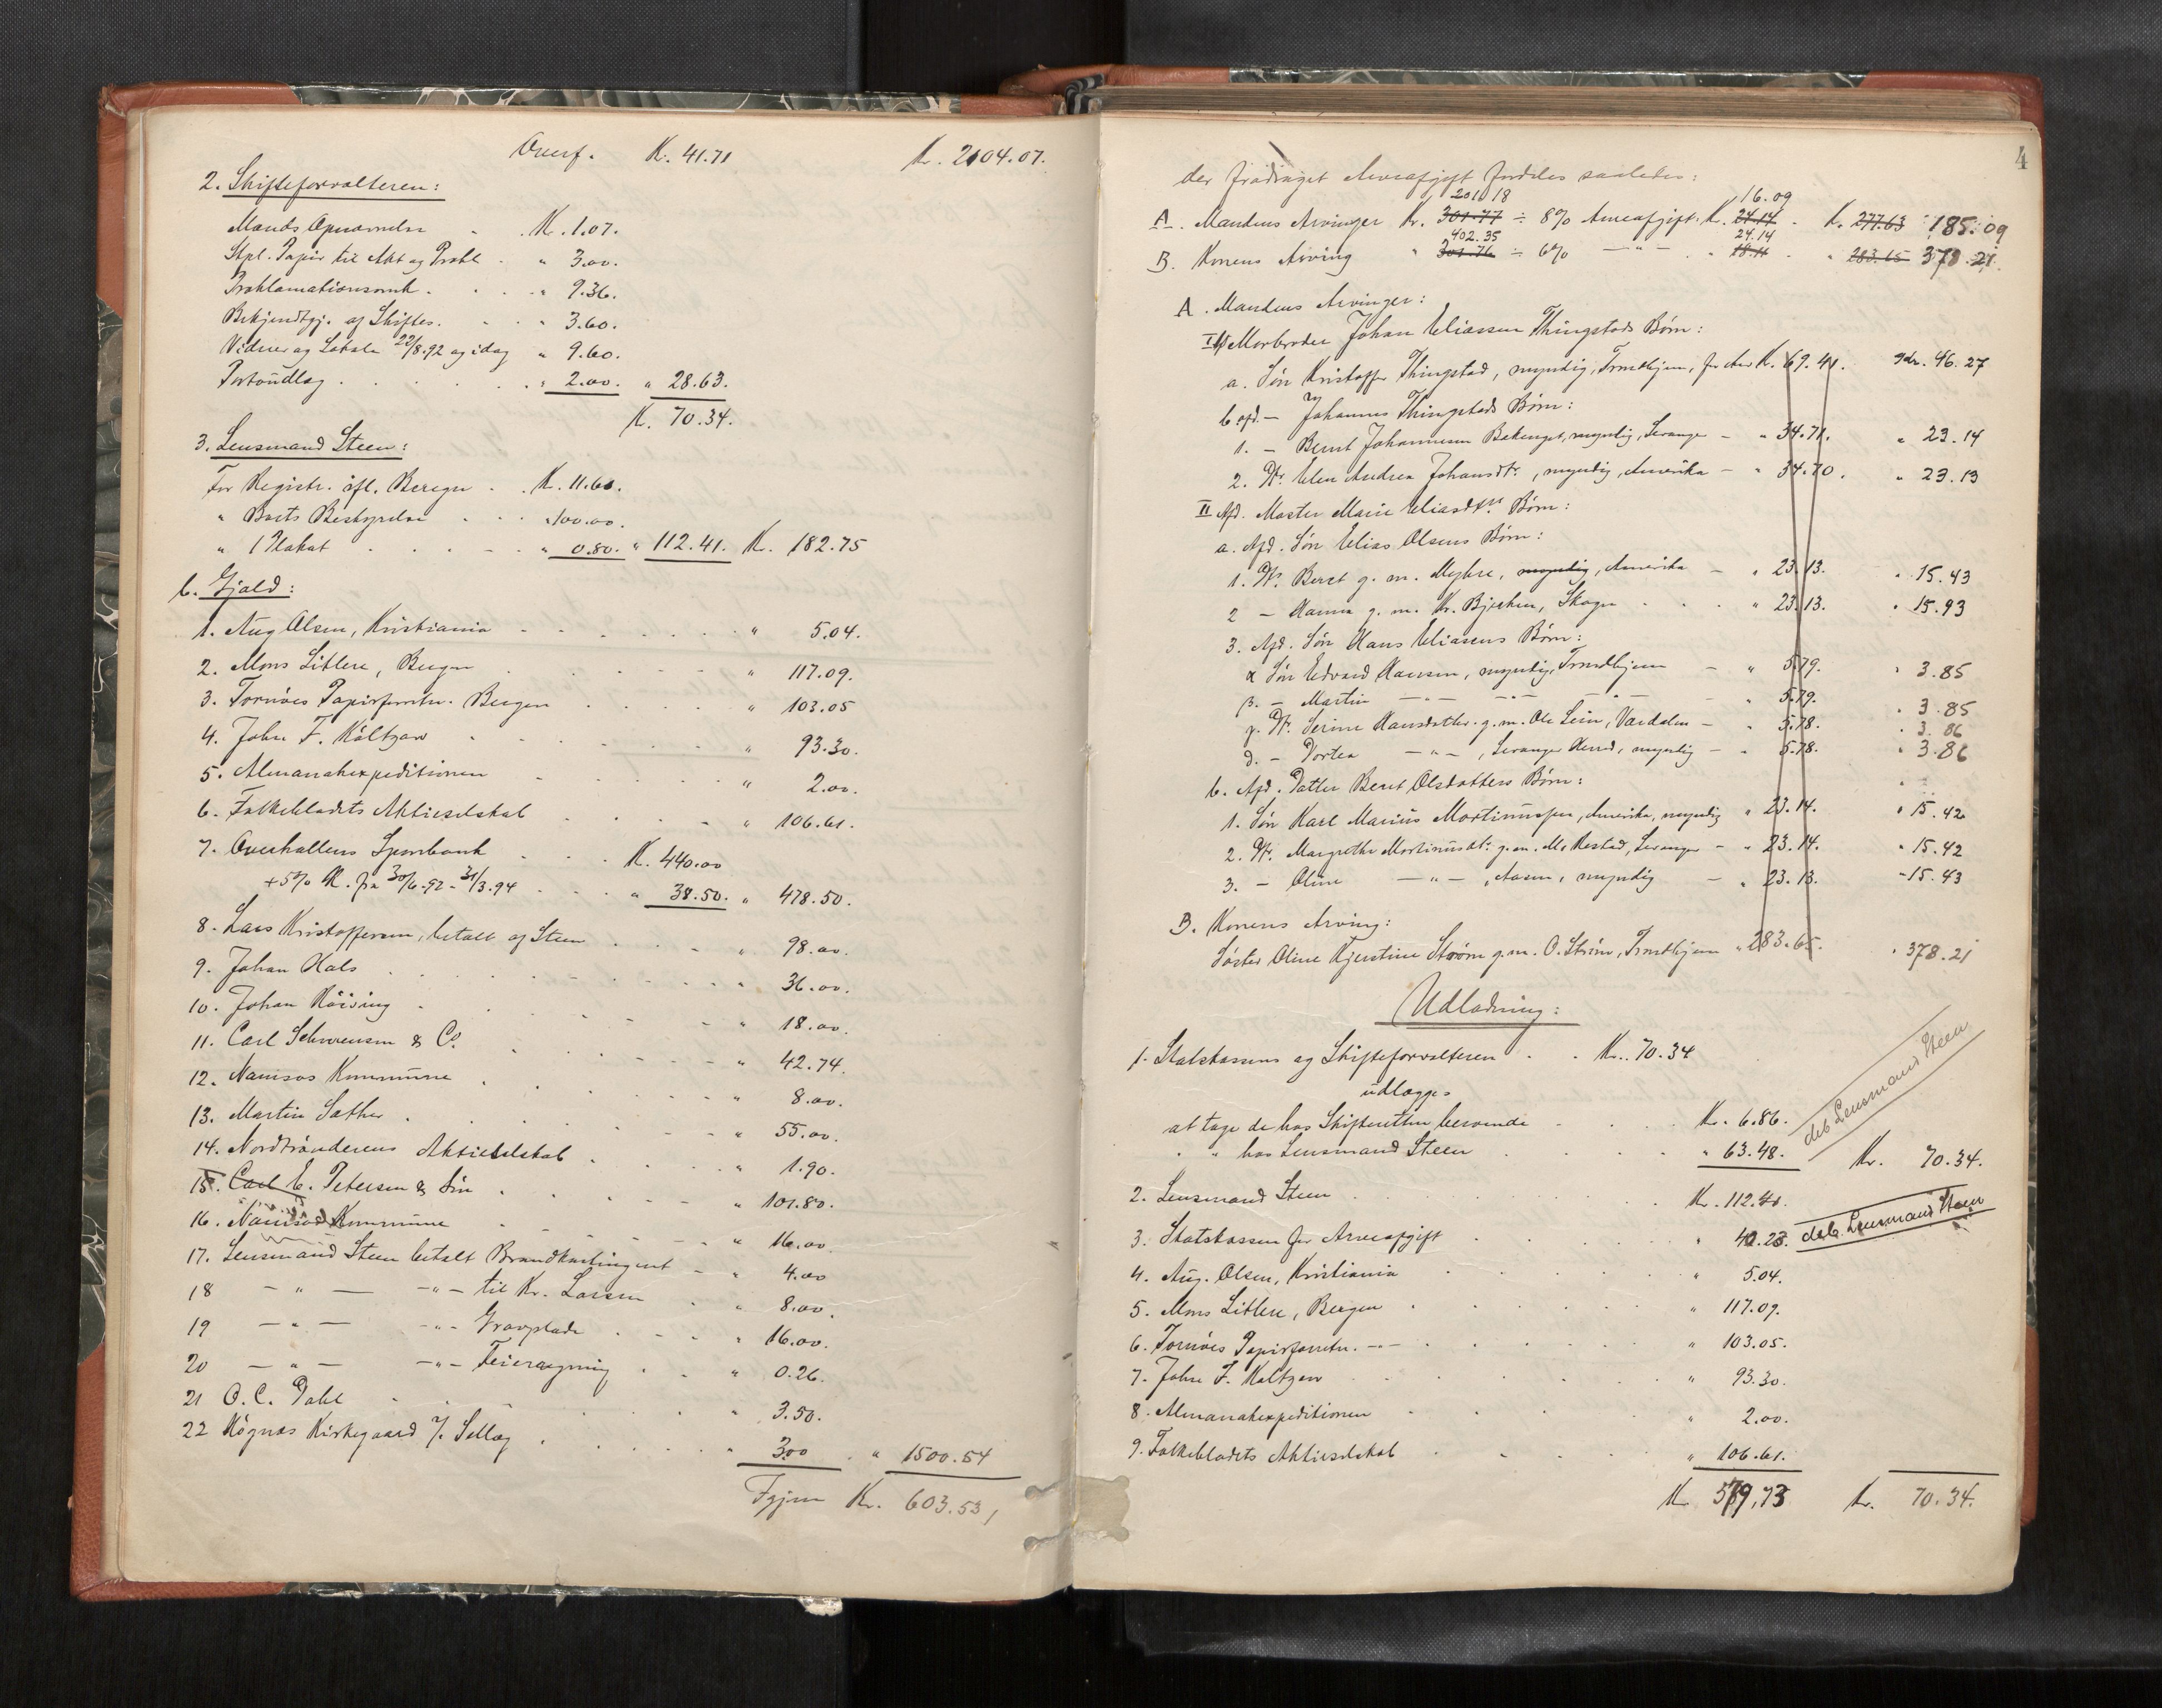 Overf. Kr. 41.71 Kr. 2104.07.
2. Skifteforvalteren:
Mands Opnævnelse Kr. 1.07.
Stpl. Papir til Akt og Prokl. " 3.00.
Proklamationsomk. " 9.36.
Bekjendtgj. af Skiftes. " 3.60.
Vidner og Lokale 22/8.92 og idag " 9.60.
Portoudlæg " 2.00. " 28.63.
Kr. 70.34.
3. Lensmand Steen:
For Registr. Kr. 11.61.
" Boets Bestyrelse " 100.00.
" 1 Plakat " 0.80. " 112.41. Kr. 182.75
b. Gjæld:
1. Aug Olsen, Kristiania " 5.04.
2. Mons Litlere, Bergen " 117.09.
3. Tornöes Papirforretn. Bergen " 103.05
4. John F. Kaltzow " 93.30.
5. Almanakexpeditionen " 2.00.
6. Folkebladets Aktieselskab " 106.61.
7. Overhallens Sparebank Kr. 440.00
+ 5% R. fra 30/6.92 - 31/3.94 " 38.50. " 478.50.
8. Lars Kristoffersen, betalt af Steen " 98.00.
9. Johan Hals " 36.00.
10. Johan Høising " 18.00.
11. Carl Schwensen & Co. " 42.74.
12. Namsos Kommune " 8.00.
13. Martin Sæther " 55.00.
14. Nordtrønderens Aktieselskab " 1.90.
15. Carl E. Petersen & Søn " 101.80.
16. Namsos Kommune " 16.00
17. Lensmand Steen betalt Brandkontingent " 4.00
18 - " - - " - til Kr. Larsen " 8.00.
19 - " - - " - Gravplads " 16.00.
20 - " - - " - Feieregning " 0.26.
21 O. C. Dahl " 3.50.
22 Høgnæs Kirkegaard v/ Sellæg " 3.00 " 1500.54
Igjen Kr. 603.53
4
der fradraget Arveafgift fordeles saaledes:
201.18 16.09
A. Mandens Arvinger Kr. 301.77 ÷ 8% Arveafgift: Kr. 24.14 Kr. 277.63 185.09
402.35 24.14
B. Konens Arving " 301.76 ÷ 6% - " - " 18.11 " 283.65 378.21.
A. Mandens Arvinger:
I. Morbroder Johan Eliassen Thingstads Børn:
a. Søn Kristoffer Thingstad, myndig, Trondhjem, før Arv Kr. 69.41. 46.27
b. afd. - Johannes Thingstads Børn:
1. - Bernt Johannesen myndig, Levanger - " 34.71. " 23.14
2. Dtr. Elen Andrea Johansdtr., myndig, Amerika - " 34.70. " 23.13
II Afd. Moster Marie Eliasdtrs. Børn:
a. Afd. Søn Elias Olsens Børn:
1. Dtr. Beret g. m. Myhre, myndig, Amerika - " 23.13. " 15.43
2 - Hanna g. m. Kr. Bjerken, Skogn " 23.13. " 15.43
3. Afd. Søn Hans Eliasens Børn:
α Søn Edvard Hansen, myndig, Trondhjem - " 5.79. " 3.85
β. - Martin - " - - " - - " - " 5.79. " 3.85
γ. Dtr. Serine Hansdatter g. m. Ole Lein, Værdalen - " 5.78. " 3.86
δ. - Dortea - " - , Levanger Herred, myndig - " 5.78. " 3.86
b. Afd. Datter Beret Olsdatters Børn:
1. Søn Karl Marius Martinussen, Amerika, myndig " 23.14. " 15.42
2. Dtr. Margrethe Martinusdtr. g. m. M. Rostad, Levanger - " 23.14. " 15.42
3. - Oline - " - , Aasen, myndig - " 23.13. " 15.43
B. Konens Arving:
Søster Oline Kjerstine Strøm g. m. O. Strøm, Trondhjem " 283.65. " 378.21
Udlodning:
1. Statskassens og Skifteforvalteren Kr. 70.34
udlægges
at tage de hos Skifteretten beroende Kr. 6.86.
" " hos Lensmand Steen " 63.48. Kr. 70.34.
deb. Lensmand Steen
2. Lensmand Steen Kr. 112.41.
3. Statskassen for Arveafgift " 40.23. deb. Lensmand Steen
4. Aug. Olsen, Kristiania " 5.04.
5. Mons Litlere, Bergen " 117.09.
6. Tornöes Papirforretn. - " - " 103.05.
7. John F. Kaltzow " 93.30.
8. Almanakexpeditionen " 2.00.
9. Folkebladets Aktieselskab " 106.61.
Kr. 579.73 Kr. 70.34.